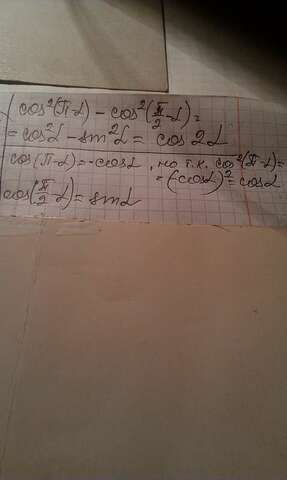 cos²(π-α) - cos²(π/2-α) =
= cos²α - sin²α = cos 2α
cos(π-α) = -cosα, но т.к. cos²(π-α) =
= (-cosα)² = cosα
cos(π/2-α) = sinα